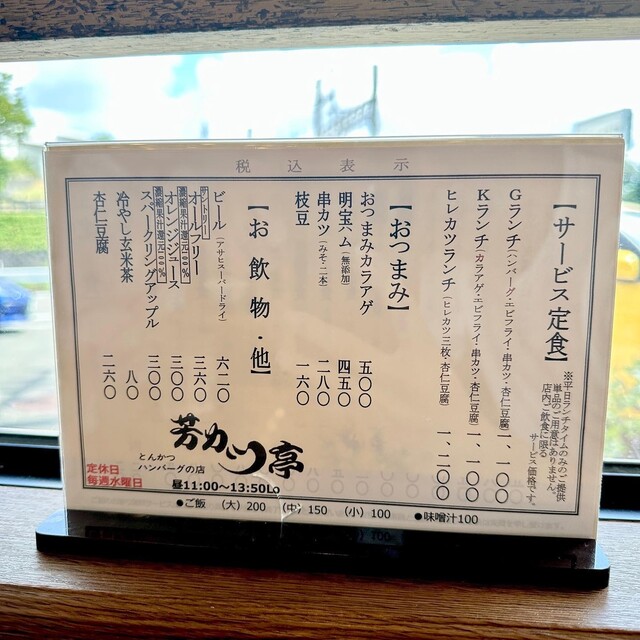 税込表示
【サービス定食】
※平日ランチタイムのみのご提供
単品のご用意はありません。
店内ご飲食に限る
サービス価格です。
Gランチ(ハンバーグ・エビフライ・串カツ・杏仁豆腐) 一、一〇〇
Kランチ(カラアゲ・エビフライ・串カツ・杏仁豆腐) 一、一〇〇
ヒレカツランチ(ヒレカツ三枚・杏仁豆腐) 一、二〇〇
【おつまみ】
おつまみカラアゲ 五〇〇
明宝ハム(無添加) 四五〇
串カツ(みそ・二本) 二八〇
枝豆 一六〇
【お飲物・他】
ビール(アサヒスーパードライ) 六二〇
サントリーオールフリー 三六〇
濃縮果汁還元100%オレンジジュース 三〇〇
濃縮果汁還元100%スパークリングアップル 三〇〇
冷やし玄米茶 八〇
杏仁豆腐 二六〇
芳かつ亭
とんかつ
ハンバーグの店
定休日
毎週水曜日
昼11:00〜13:50Lo
●ご飯 (大)200 (中)150 (小)100 ●味噌汁100